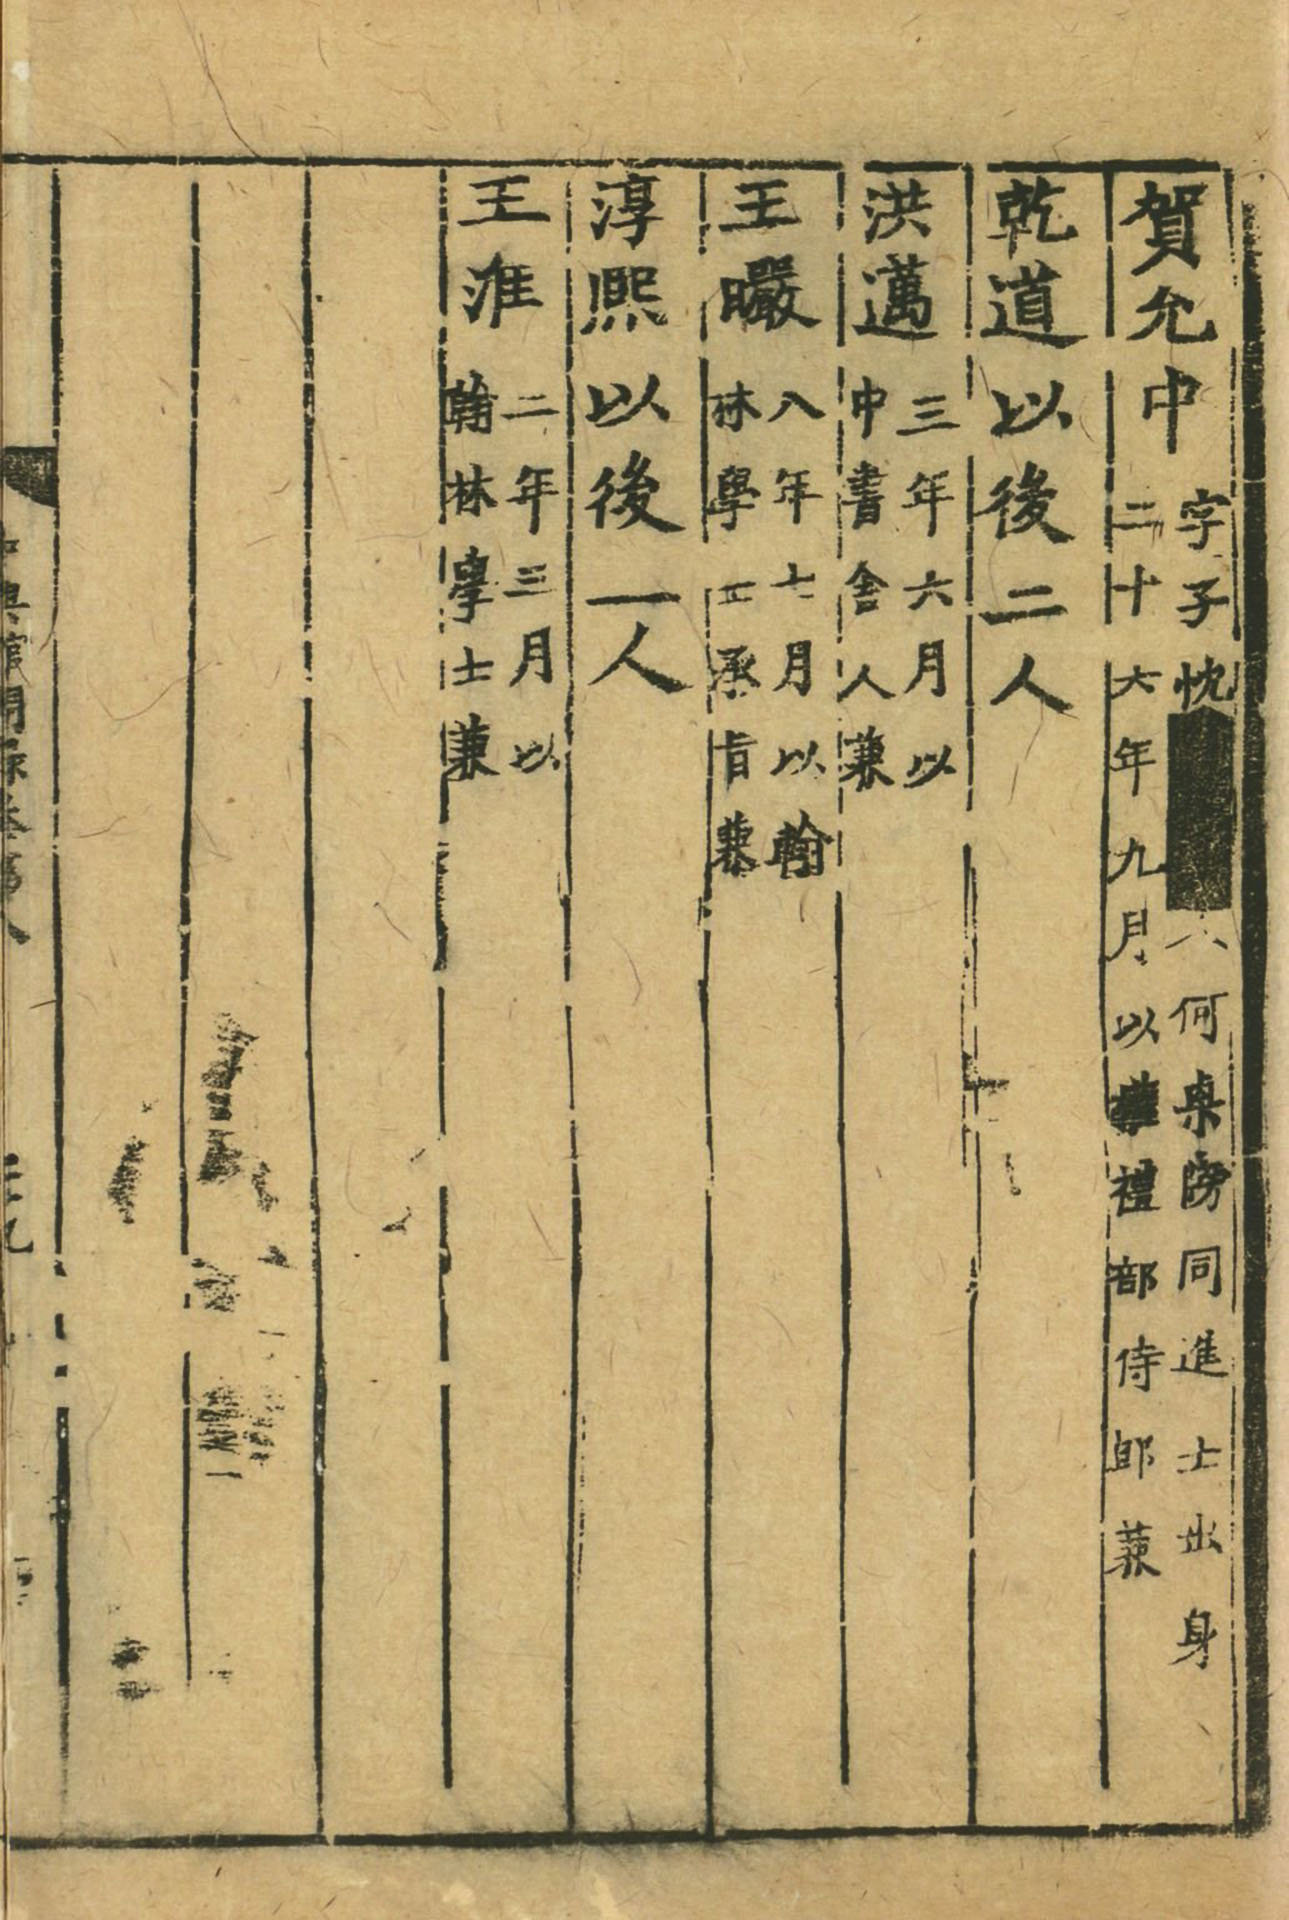 賀允中字子忱人何㮚牓同進士出身
二十六年九月以權禮部侍郎兼
乾道以後二人
洪邁三年六月以
中書舍人兼
王曮八年七月以翰
林學士承旨兼
淳熙以後一人
王淮二年三月以
翰林學士兼
中興館閣錄卷第八